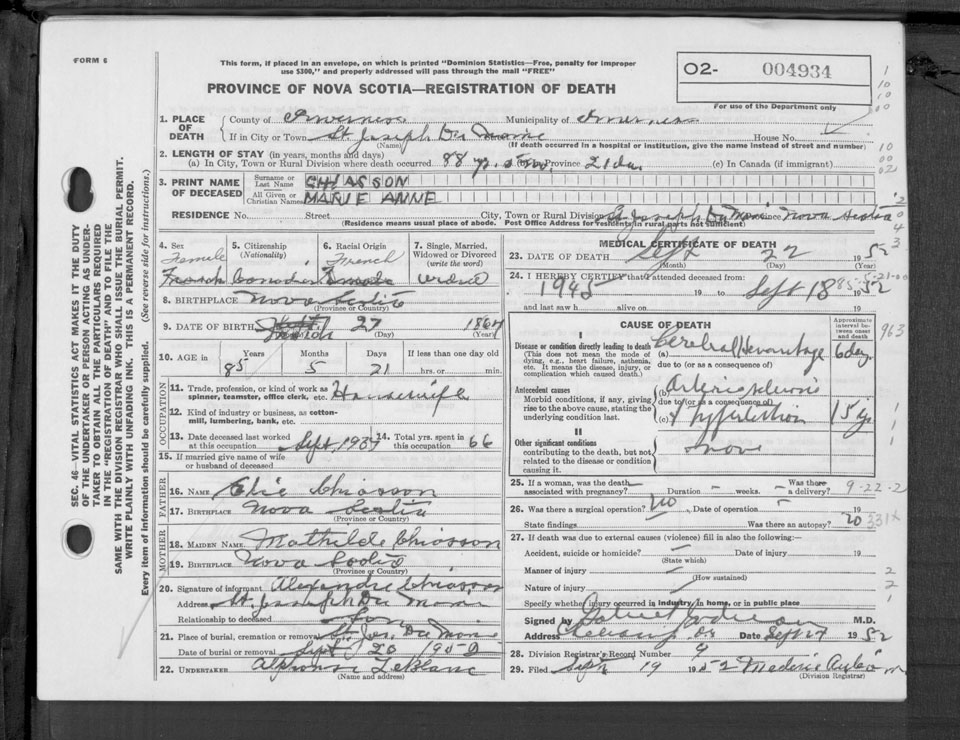 FORM 6
This form, if placed in an envelope, on which is printed "Dominion Statistics—Free, penalty for improper
use $300," and properly addressed will pass through the mail "FREE"
02- 004934
PROVINCE OF NOVA SCOTIA—REGISTRATION OF DEATH
For use of the Department only
1. PLACE OF DEATH
County of Inverness Municipality of Inverness
If in City or Town St. Joseph Du Moine House No.
(Name) (If death occurred in a hospital or institution, give the name instead of street and number)
2. LENGTH OF STAY (in years, months and days)
(a) In City, Town or Rural Division where death occurred 88 yr. 5 Province 21 da. (c) In Canada (if immigrant)
3. PRINT NAME OF DECEASED
Surname or Last Name CHIASSON
All Given or Christian Names MARIE ANNE
RESIDENCE No. Street City, Town or Rural Division St. Joseph Du Moine Province Nova Scotia
(Residence means usual place of abode. Post Office Address for residents in rural parts not sufficient)
4. Sex Female
5. Citizenship (Nationality) Canadian
6. Racial Origin French
7. Single, Married, Widowed or Divorced (write the word)
8. BIRTHPLACE Nova Scotia
(Province or Country)
9. DATE OF BIRTH 27 1864
(Month) (Day)
10. AGE in Years Months Days If less than one day old
85 5 21 hrs. or min.
OCCUPATION
11. Trade, profession, or kind of work as
spinner, teamster, office clerk, etc. Housewife
12. Kind of industry or business, as cotton-
mill, lumbering, bank, etc.
13. Date deceased last worked
at this occupation Sept, 1937
14. Total yrs. spent in
this occupation 66
15. If married give name of wife
or husband of deceased
FATHER
16. NAME Elie Chiasson
17. BIRTHPLACE Nova Scotia
(Province or Country)
MOTHER
18. MAIDEN NAME Mathilde Chiasson
19. BIRTHPLACE Nova Scotia
(Province or Country)
20. Signature of informant Alexandre Chiasson
Address St. Joseph Du Moine
Relationship to deceased Son
21. Place of burial, cremation or removal St. Jos. Du Moine
Date of burial or removal Sept 20 1952
22. UNDERTAKER Alphonse LeBlanc
(Name and address)
MEDICAL CERTIFICATE OF DEATH
23. DATE OF DEATH Sept 22 1952
(Month) (Day) (Year)
24. I HEREBY CERTIFY that I attended deceased from:
1945 19 to Sept 18 1952
and last saw h alive on 19
CAUSE OF DEATH
Approximate interval between onset and death
I
Disease or condition directly leading to death
(This does not mean the mode of
dying, e.g., heart failure, asthenia,
etc. It means the disease, injury, or
complication which caused death.)
(a) Cerebral 6 day
due to (or as a consequence of)
Antecedent causes
Morbid conditions, if any, giving
rise to the above cause, stating the
underlying condition last.
(b)
due to (or as a consequence of)
(c) 15 yr
II
Other significant conditions
contributing to the death, but not
related to the disease or condition
causing it.
none
25. If a woman, was the death
associated with pregnancy? Duration — weeks. Was there
a delivery?
9-22-2
26. Was there a surgical operation? No Date of operation 19
State findings Was there an autopsy?
27. If death was due to external causes (violence) fill in also the following:—
Accident, suicide or homicide? Date of injury 19
(State which)
Manner of injury
(How sustained)
Nature of injury
Specify whether injury occurred in industry, in home, or in public place
Signed by M.D.
Address Date Sept 1952
28. Division Registrar's Record Number 9
29. Filed Sept 19 1952
(Division Registrar)
SEC. 46—VITAL STATISTICS ACT MAKES IT THE DUTY
OF THE UNDERTAKER OR PERSON ACTING AS UNDER-
TAKER TO OBTAIN ALL THE PARTICULARS REQUIRED
IN THE "REGISTRATION OF DEATH" AND TO FILE THE
SAME WITH THE DIVISION REGISTRAR WHO SHALL ISSUE THE BURIAL PERMIT.
WRITE PLAINLY WITH UNFADING INK. THIS IS A PERMANENT RECORD.
Every item of information should be carefully supplied. (See reverse side for instructions.)